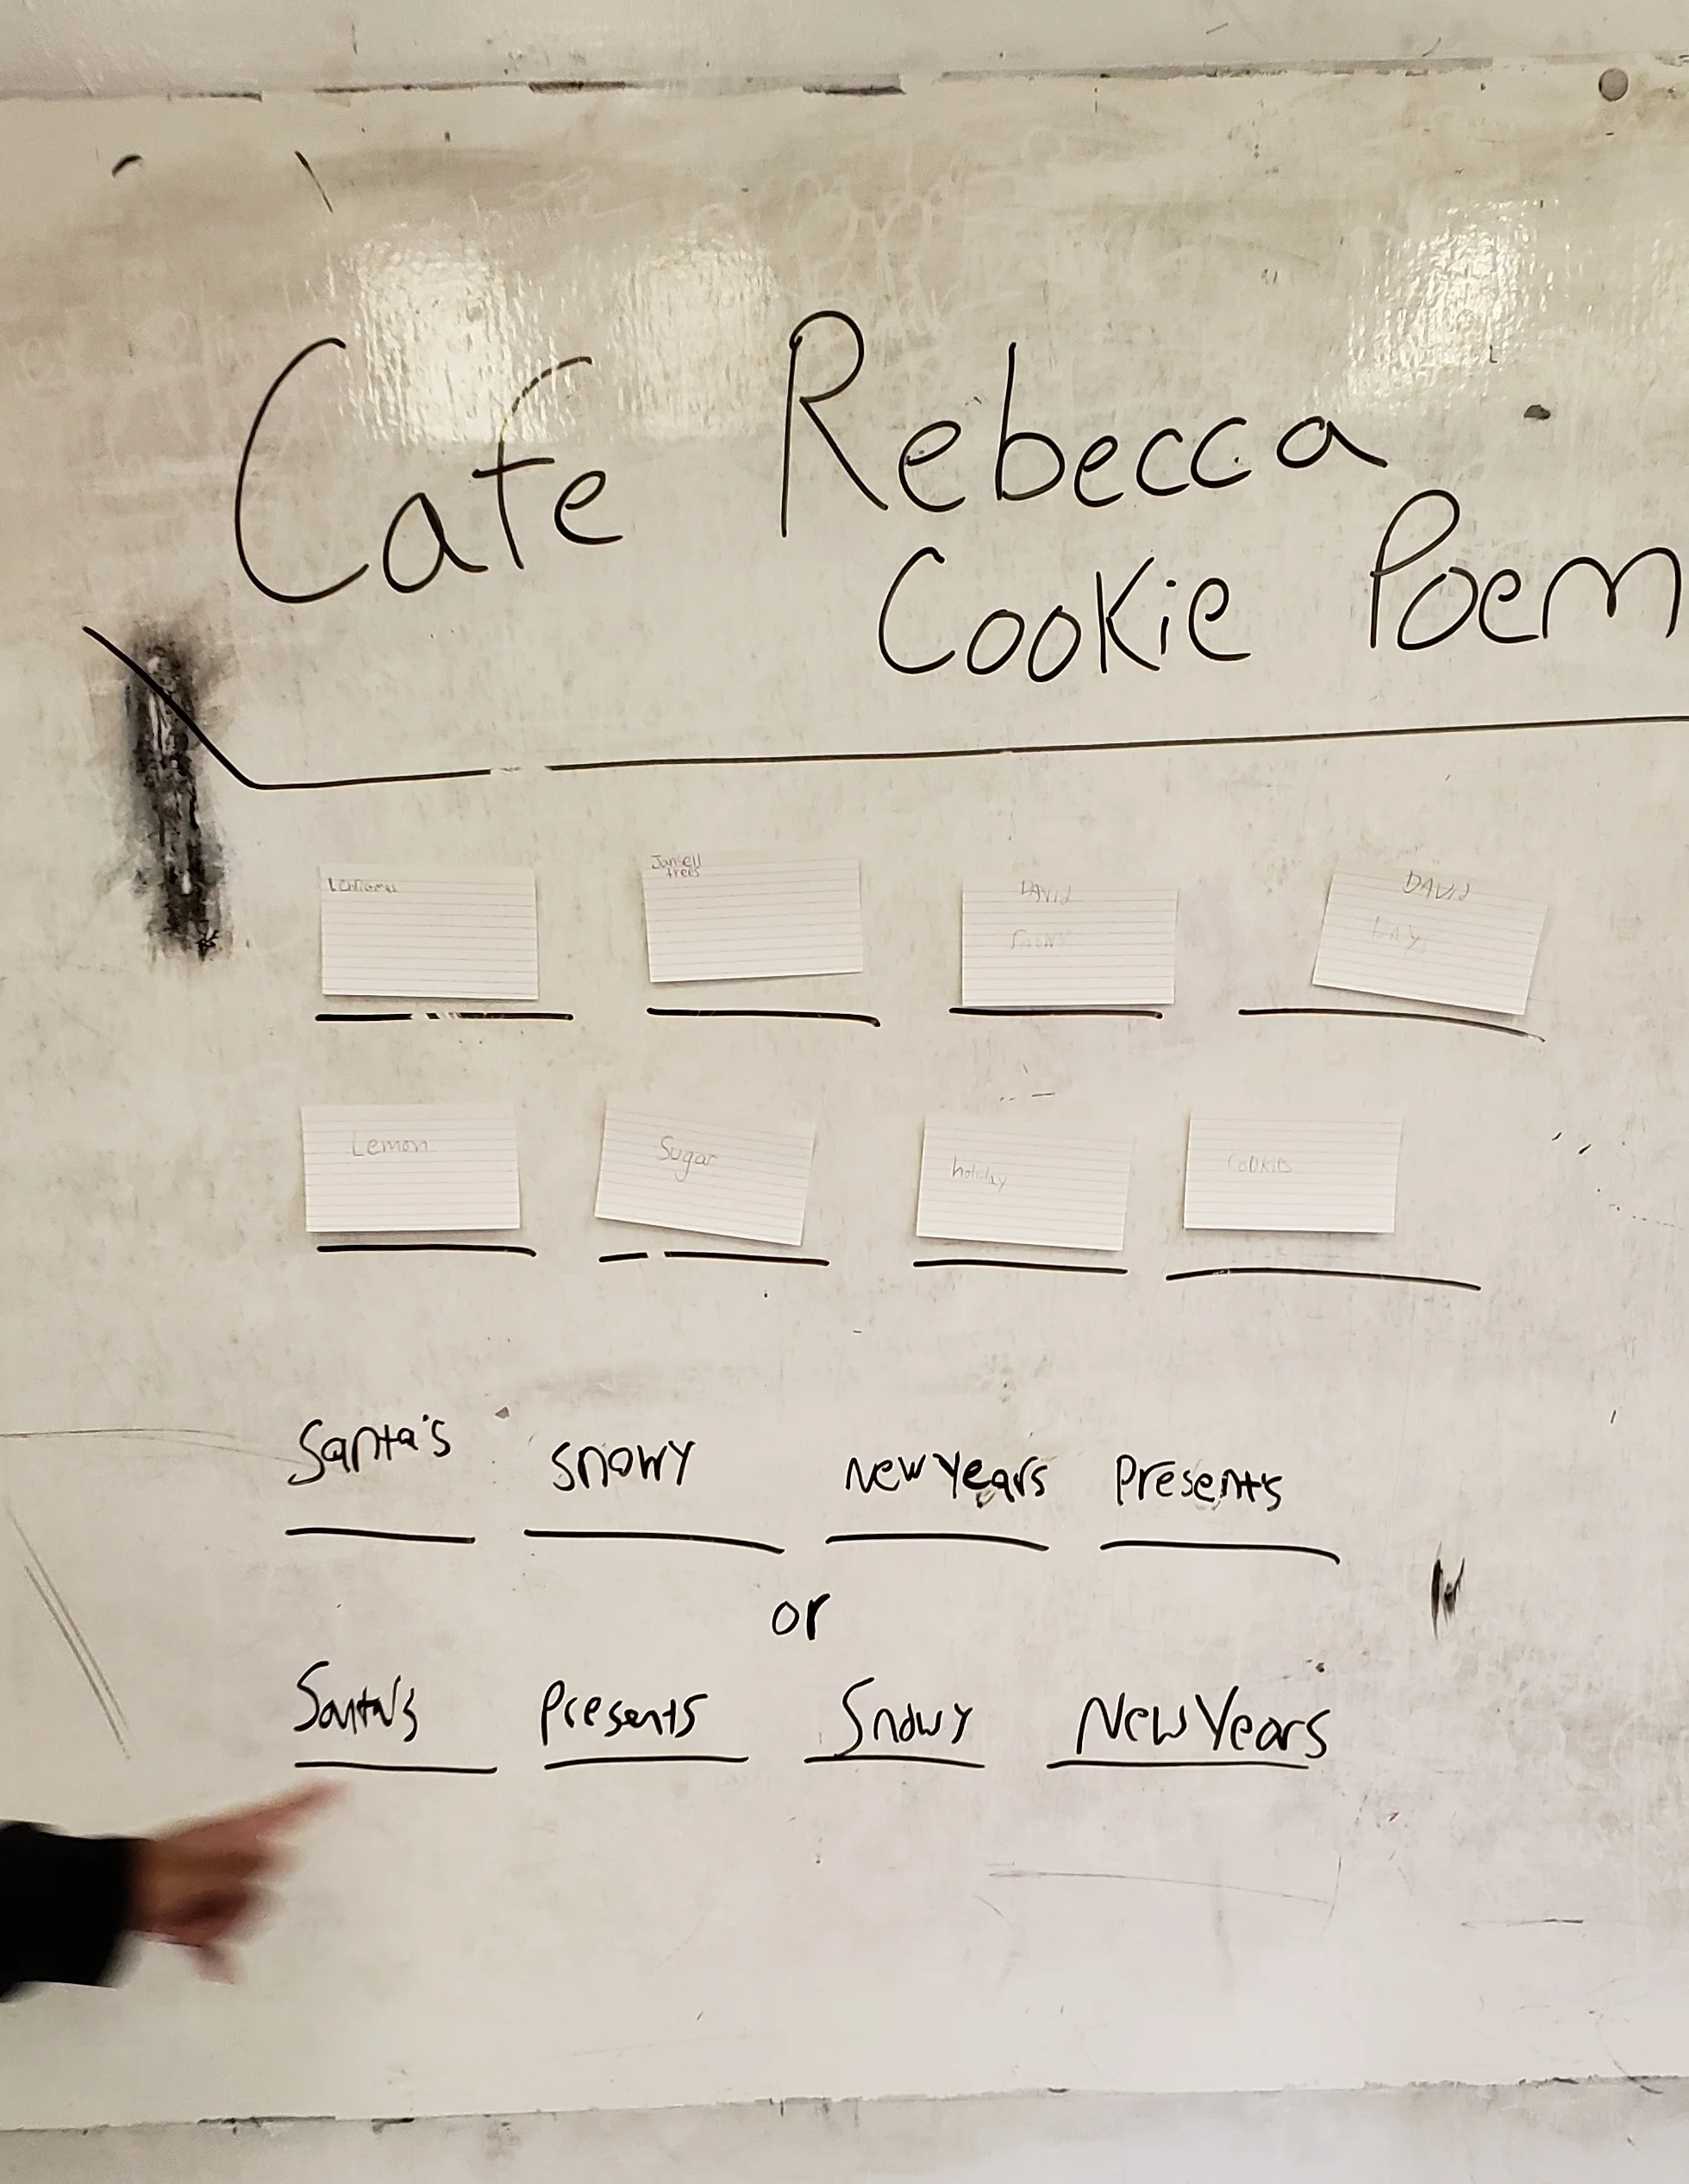 Cafe Rebecca
Cookie Poem
Christmas
Jansell
trees
DAVId
SNOWY
DAVId
DAY
Lemon
Sugar
holiday
Cookies
Santa's snowy New Years Presents
or
Santa's Presents Snowy New Years